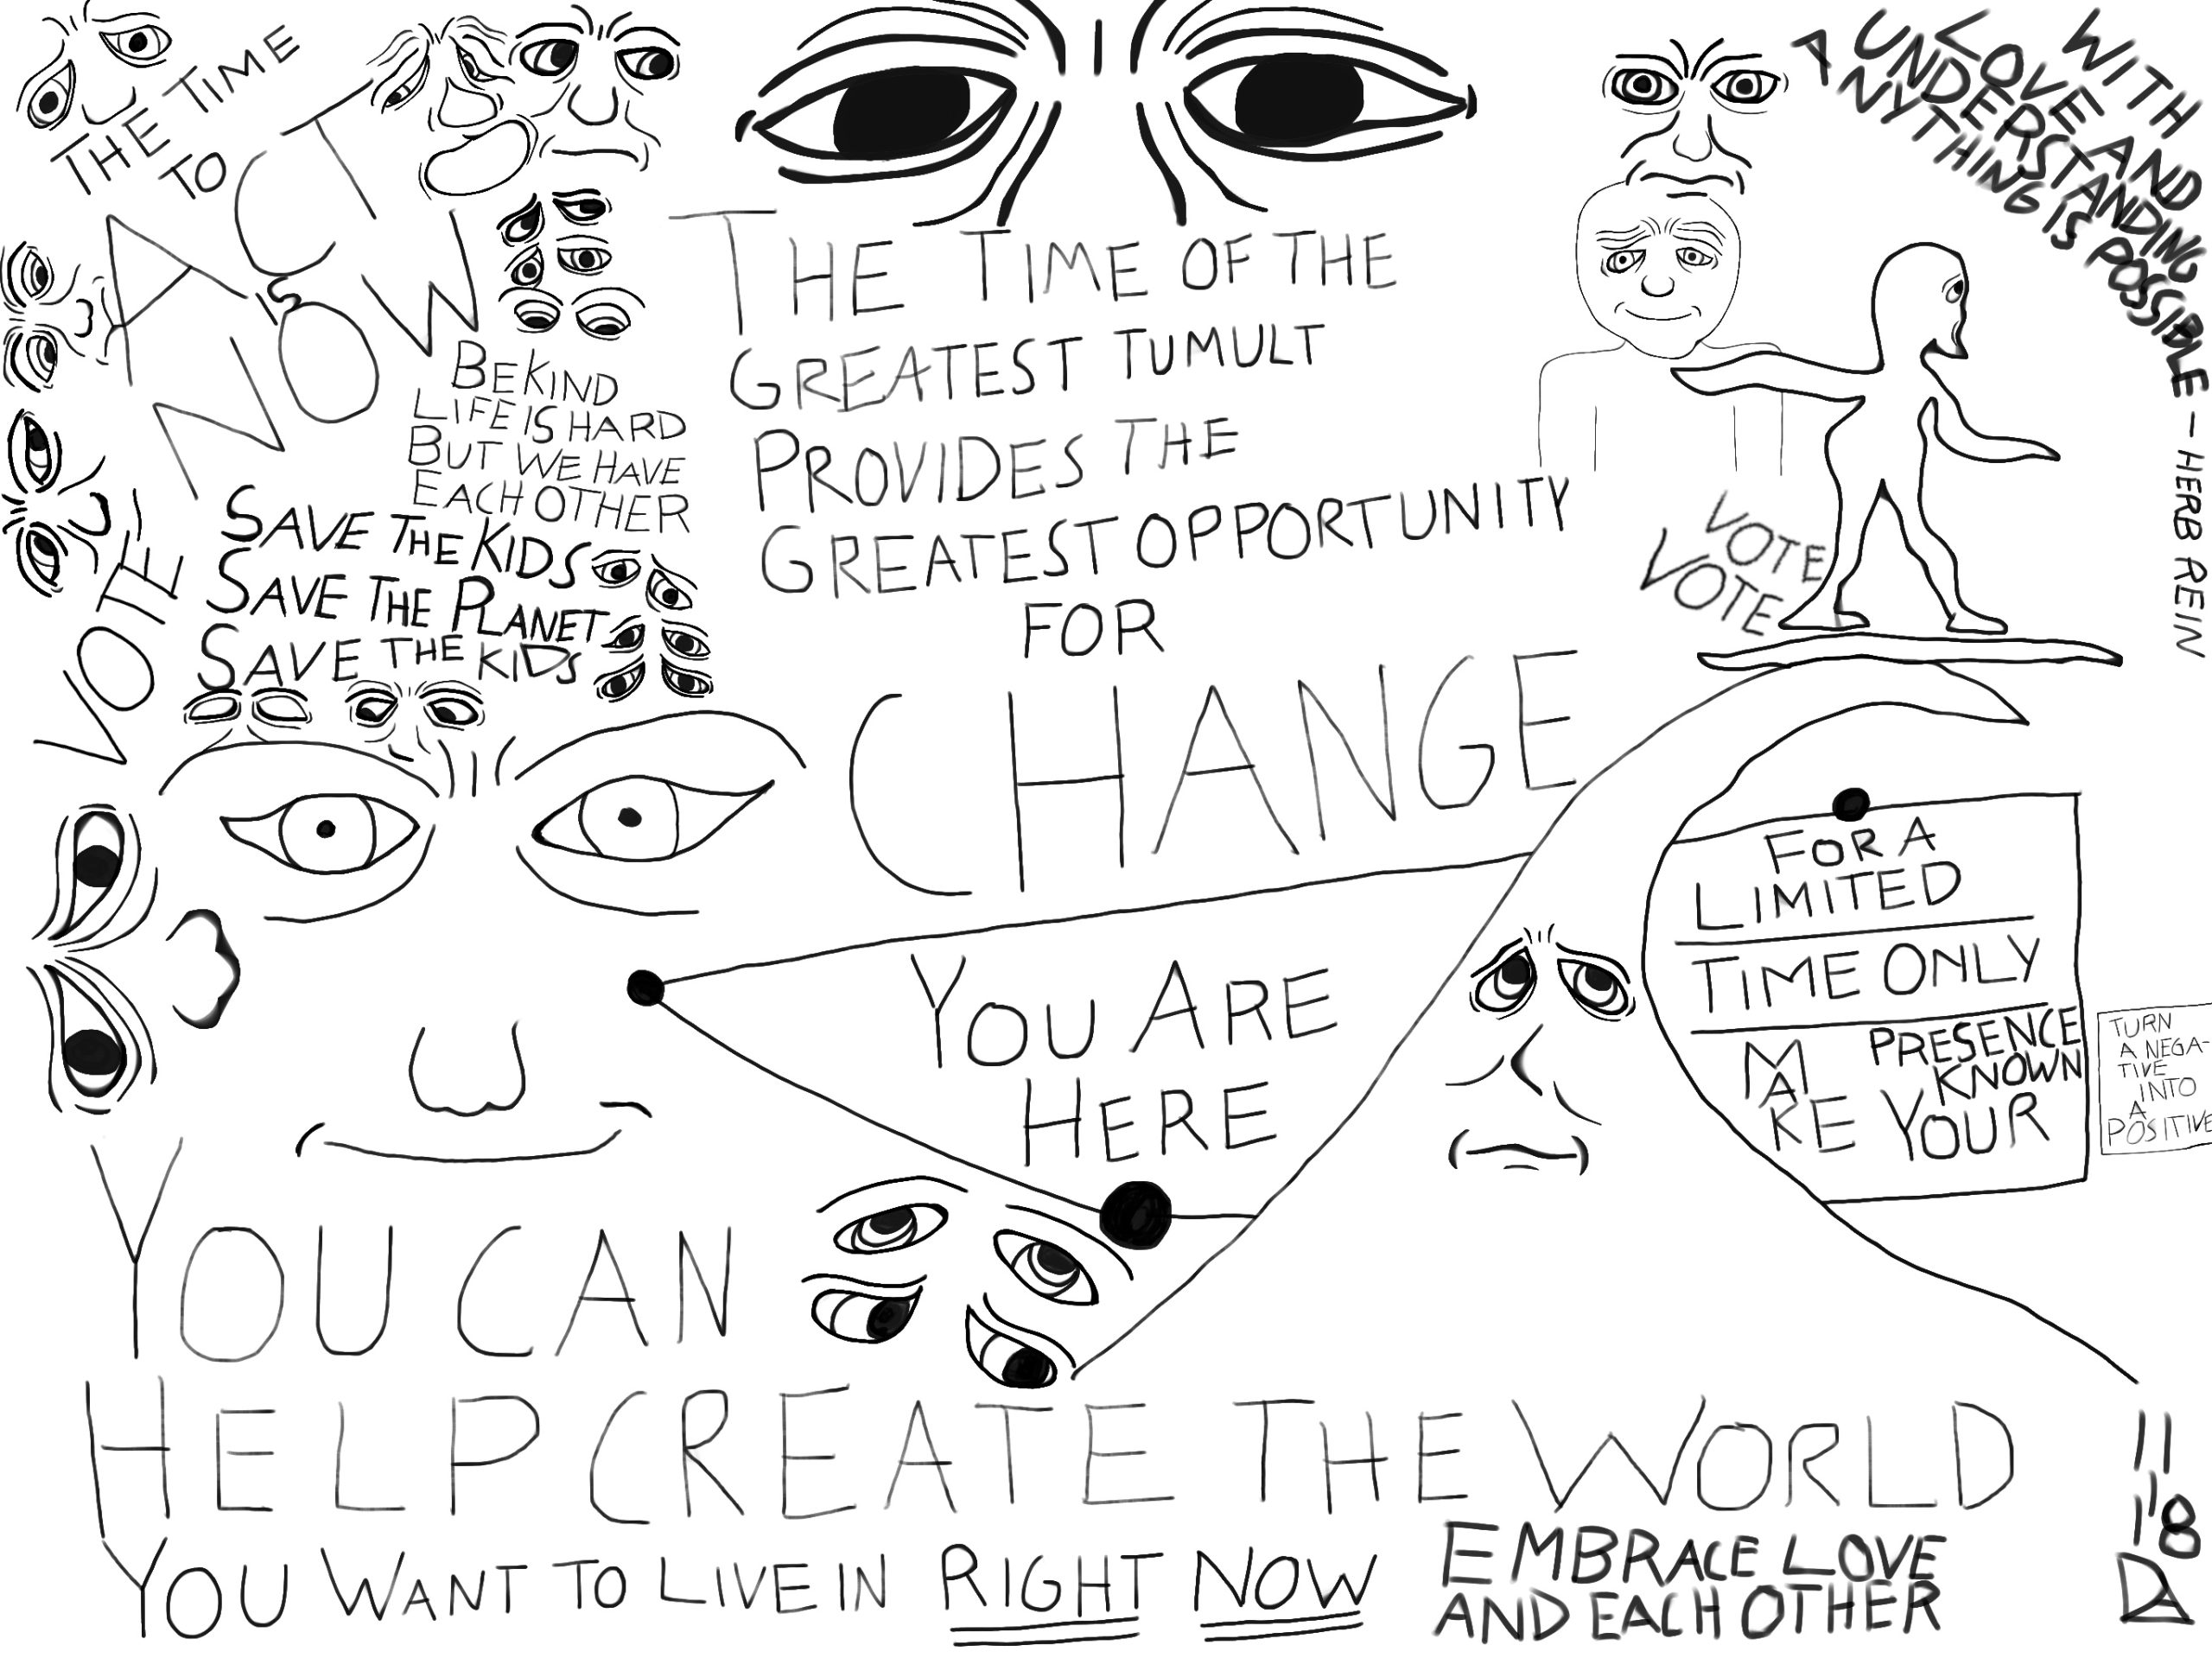 THE TIME
TO
ACT
IS
NOW
VOTE
BE KIND
LIFE IS HARD
BUT WE HAVE
EACH OTHER
SAVE THE KIDS
SAVE THE PLANET
SAVE THE KIDS
THE TIME OF THE
GREATEST TUMULT
PROVIDES THE
GREATEST OPPORTUNITY
FOR
CHANGE
WITH
LOVE AND
UNDERSTANDING
ANYTHING IS POSSIBLE - HERB REIN
VOTE
VOTE
YOU ARE
HERE
FOR A
LIMITED
TIME ONLY
MAKE YOUR
PRESENCE
KNOWN
TURN
A NEGA-
TIVE
INTO
A
POSITIVE
YOU CAN
HELP CREATE THE WORLD
YOU WANT TO LIVE IN RIGHT NOW
EMBRACE LOVE
AND EACH OTHER
11
1'18
DA